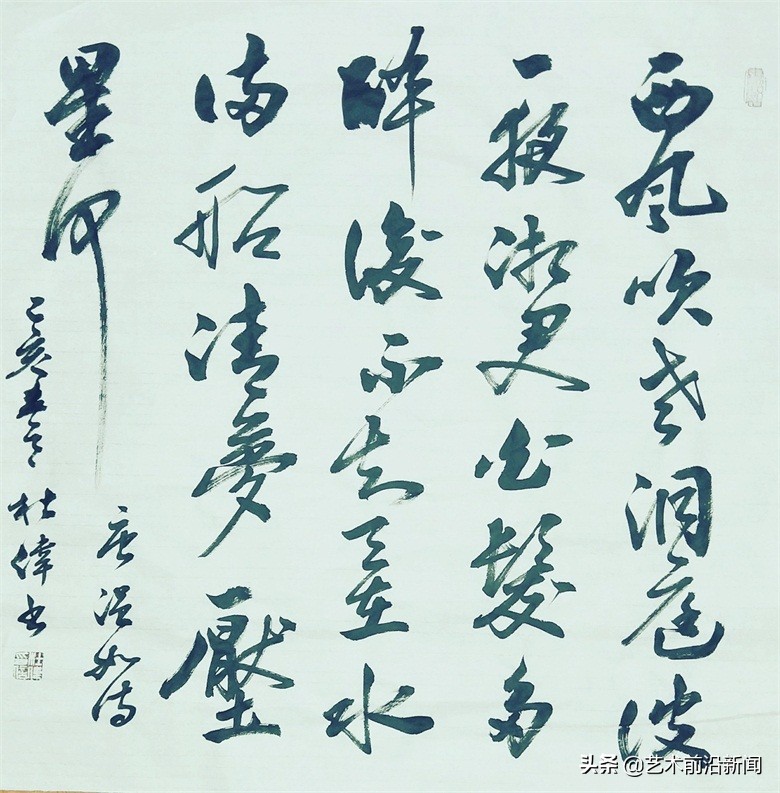 西风吹老洞庭波
一夜湘君白髮多
醉後不知天在水
满船清夢壓
星河
唐温如诗
己亥 杜偉书
头条 @艺术前沿新闻